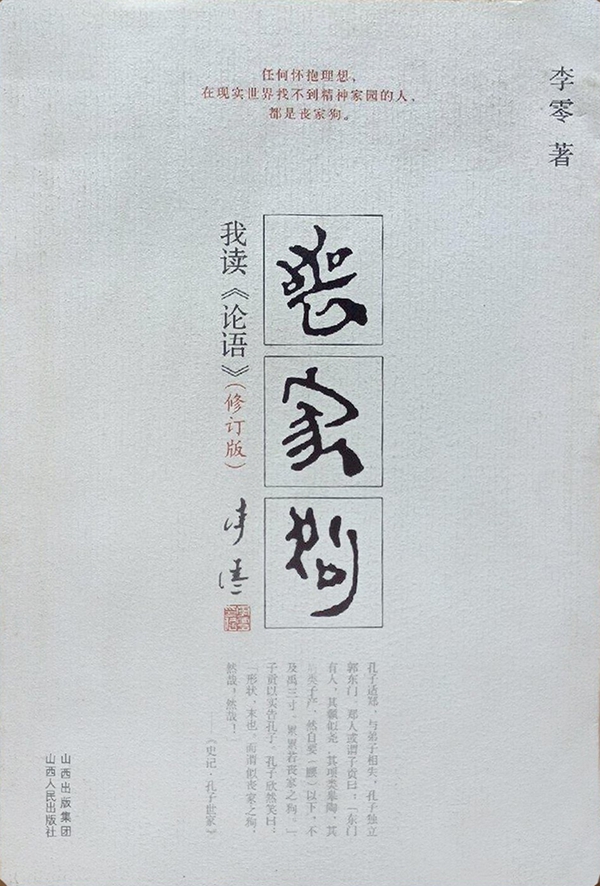 任何怀抱理想，
在现实世界找不到精神家园的人，
都是丧家狗。
李零 著
丧家狗
我读《论语》（修订版）
孔子适郑，与弟子相失，孔子独立
郭东门。郑人或谓子贡曰：「东门
有人，其颡似尧，其项类皋陶，其
肩类子产，然自要（腰）以下，不
及禹三寸。累累若丧家之狗。」
子贡以实告孔子。孔子欣然笑曰：
「形状，末也。而谓似丧家之狗，
然哉！然哉！」
——《史记·孔子世家》
山西出版集团
山西人民出版社